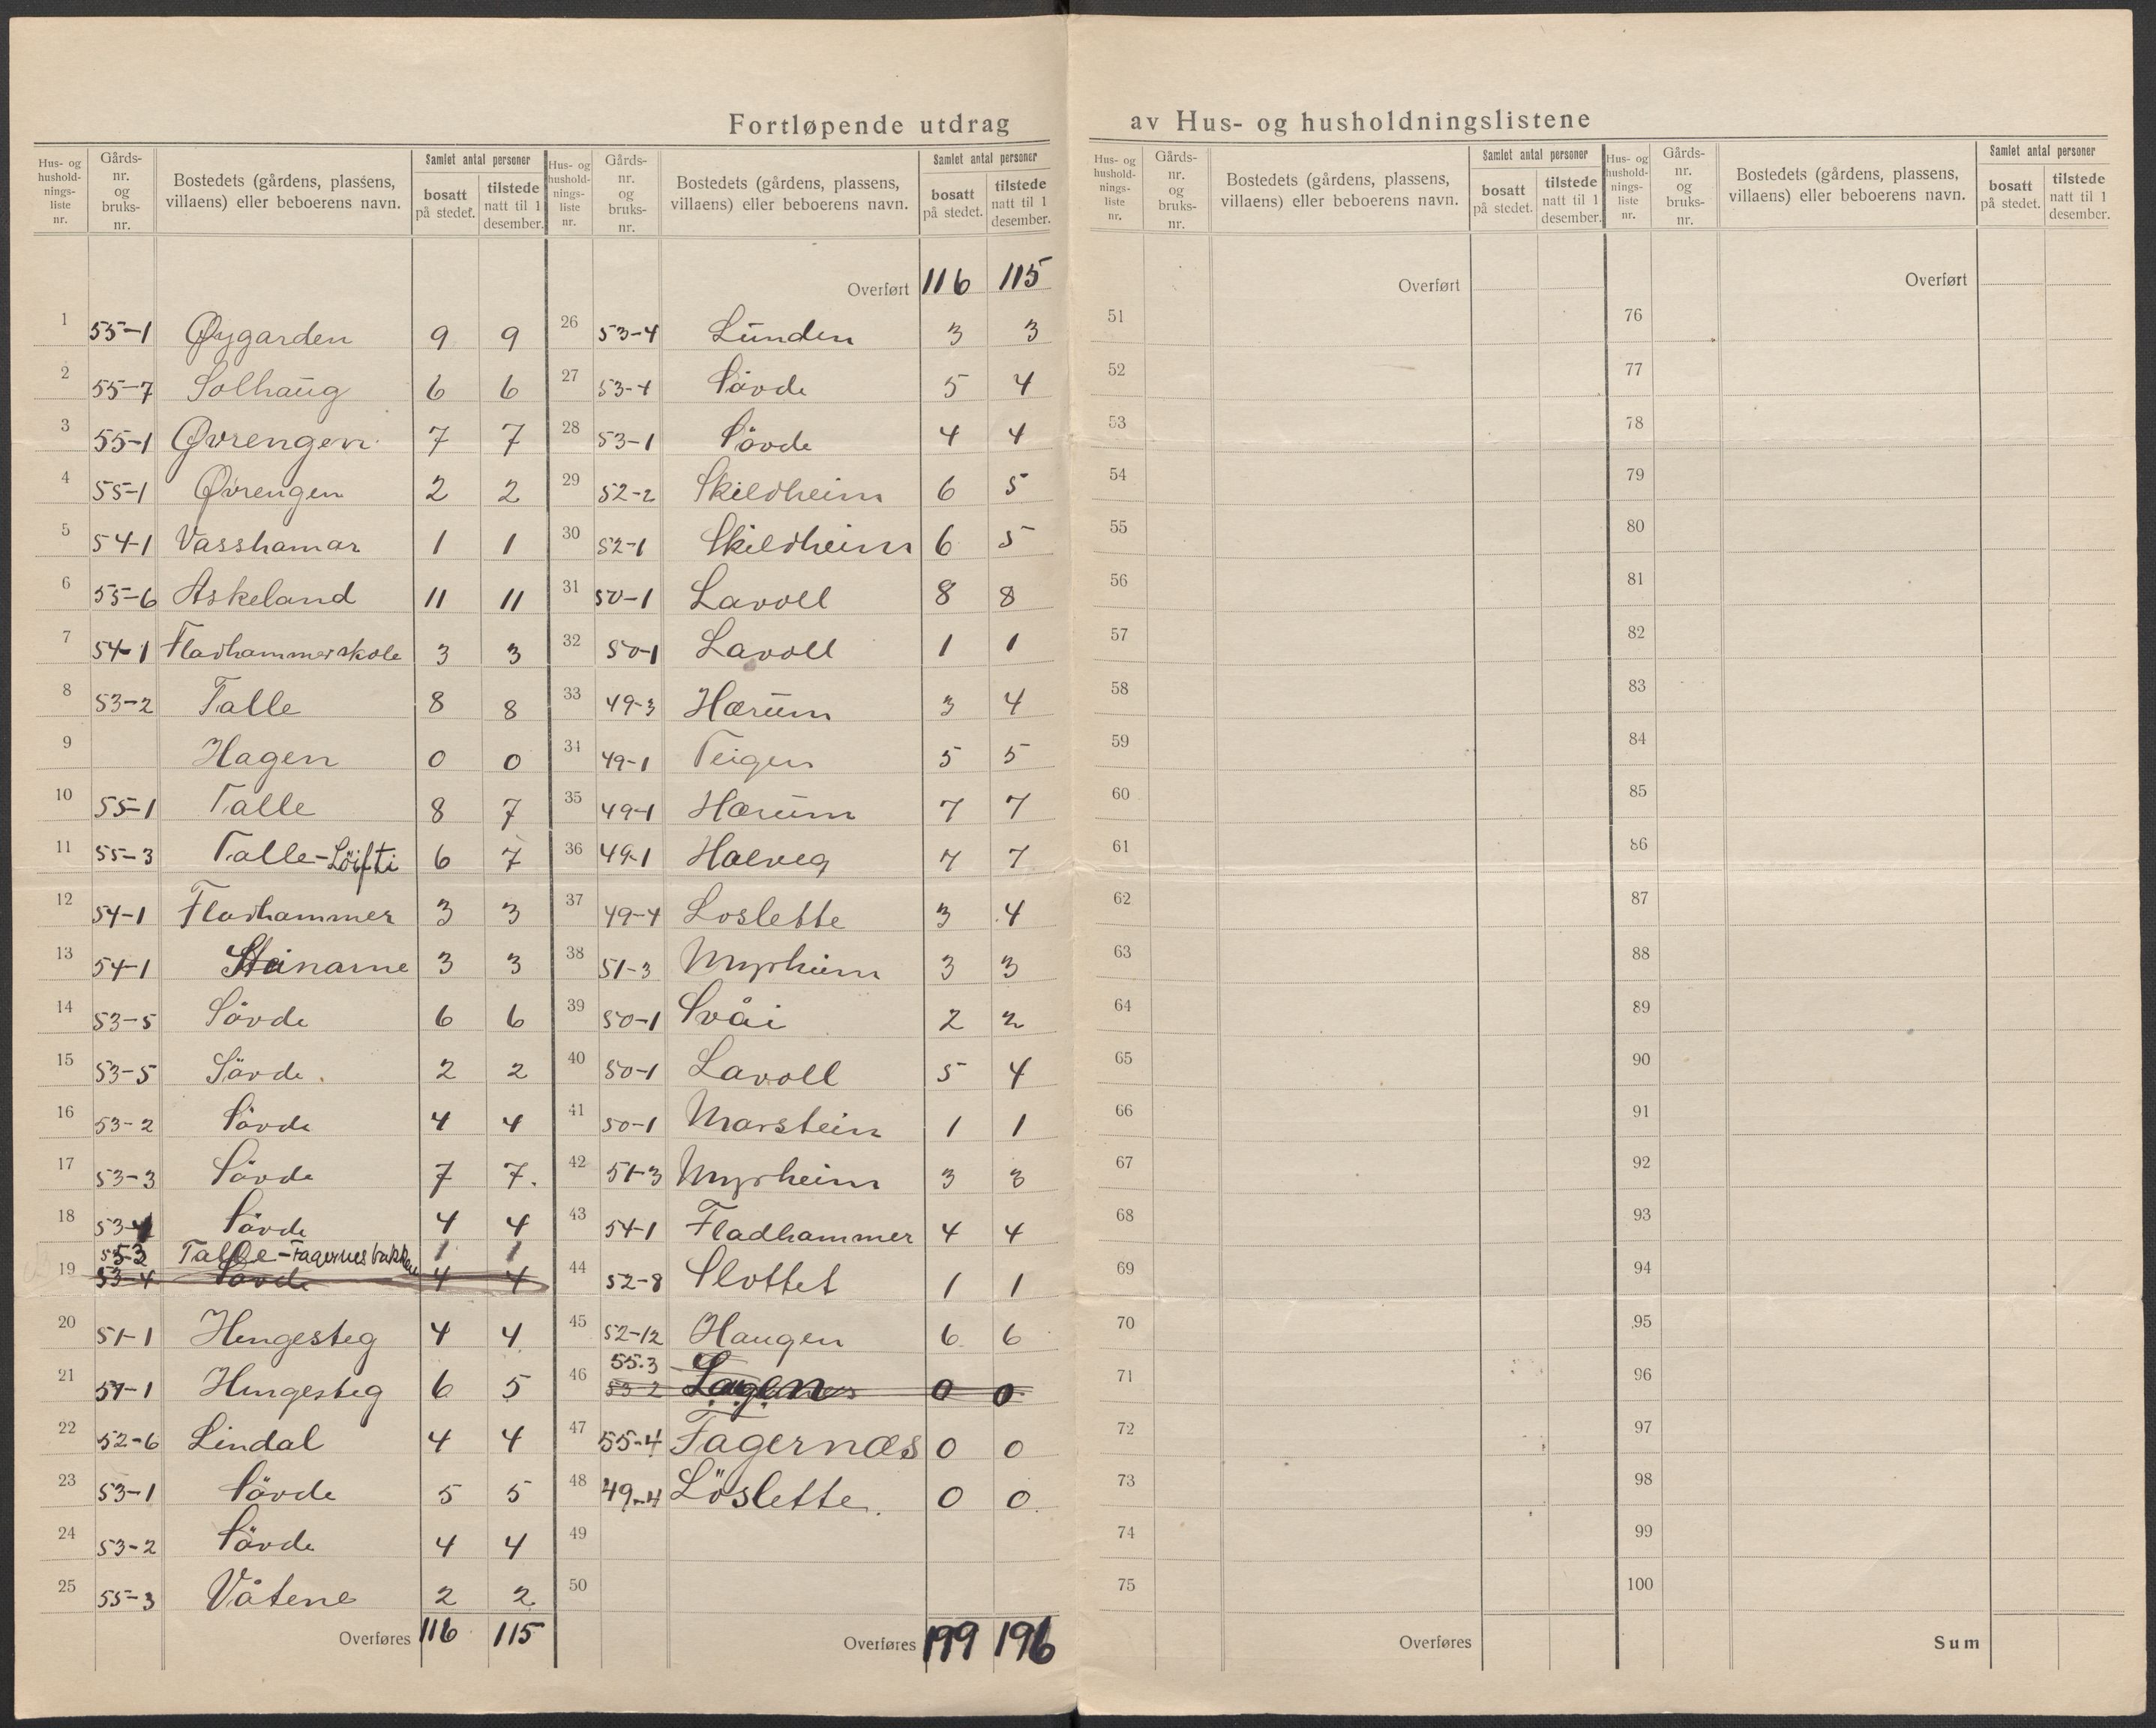 Fortløpende utdrag av Hus- og husholdningslistene
Hus- og hushold-nings-liste nr. | Gårds-nr. og bruks-nr. | Bostedets (gårdens, plassens, villaens) eller beboerens navn. | Samlet antal personer | bosatt på stedet. | tilstede natt til 1 desember.
1 55-1 Øygarden 9 9
2 55-7 Solhaug 6 6
3 55-1 Øvrengen 7 7
4 55-1 Øvrengen 2 2
5 54-1 Vasshamar 1 1
6 55-6 Askeland 11 11
7 54-1 Fladhammerskole 3 3
8 53-2 Talle 8 8
9 Hagen 0 0
10 55-1 Talle 8 7
11 55-3 Talle-Löifti 6 7
12 54-1 Fladhammer 3 3
13 54-1 Steinarne 3 3
14 53-5 Sövde 6 6
15 53-5 Sövde 2 2
16 53-2 Sövde 4 4
17 53-3 Sövde 7 7.
18 53-4 Sövde 4 4
55-3 Talle-Fagernesbakken 1 1
19 53-4 Sövde 4 4
20 51-1 Hengesteg 4 4
21 51-1 Hengesteg 6 5
22 52-6 Lindal 4 4
23 53-1 Sövde 5 5
24 53-2 Sövde 4 4
25 55-3 Våtene 2 2
Overføres 116 115
Hus- og hushold-nings-liste nr. | Gårds-nr. og bruks-nr. | Bostedets (gårdens, plassens, villaens) eller beboerens navn. | Samlet antal personer | bosatt på stedet. | tilstede natt til 1 desember.
Overført 116 115
26 53-4 Lunden 3 3
27 53-4 Sövde 5 4
28 53-1 Sövde 4 4
29 52-2 Skildheim 6 5
30 52-1 Skildheim 6 5
31 50-1 Lavoll 8 8
32 50-1 Lavoll 1 1
33 49-3 Hærum 3 4
34 49-1 Teigen 5 5
35 49-1 Hærum 7 7
36 49-1 Halveg 7 7
37 49-4 Loslette 3 4
38 51-3 Myrheim 3 3
39 50-1 Svåi 2 2
40 50-1 Lavoll 5 4
41 50-1 Marstein 1 1
42 51-3 Myrheim 3 3
43 54-1 Fladhammer 4 4
44 52-8 Slottet 1 1
45 52-12 Haugen 6 6
55.3
46 53-2 0 0
47 55-4 Fagernæs 0 0
48 49-4 Löslette. 0 0
49
50
Overføres 199 196
Hus- og hushold-nings-liste nr. | Gårds-nr. og bruks-nr. | Bostedets (gårdens, plassens, villaens) eller beboerens navn. | Samlet antal personer | bosatt på stedet. | tilstede natt til 1 desember.
Overført
51
52
53
54
55
56
57
58
59
60
61
62
63
64
65
66
67
68
69
70
71
72
73
74
75
Overføres
Hus- og hushold-nings-liste nr. | Gårds-nr. og bruks-nr. | Bostedets (gårdens, plassens, villaens) eller beboerens navn. | Samlet antal personer | bosatt på stedet. | tilstede natt til 1 desember.
Overført
76
77
78
79
80
81
82
83
84
85
86
87
88
89
90
91
92
93
94
95
96
97
98
99
100
Sum